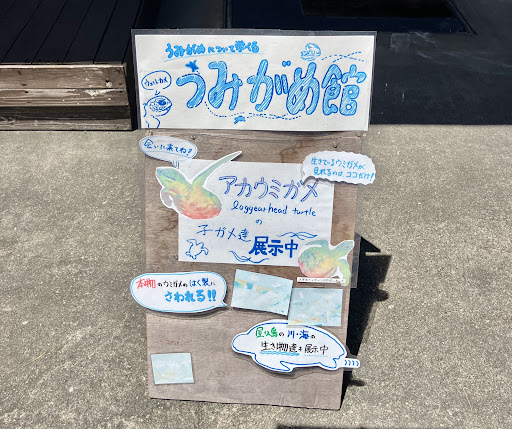 うみがめについて学べる
うみがめ館
ウェルカメ
会いに来てね!!
生きているウミガメが
見れるのは、ココだけ!
アカウミガメ
loggearhead turtle
の
子ガメ達
展示中
本物のウミガメのはく製に
さわれる!!
屋久島の川・海の
生き物達も展示中